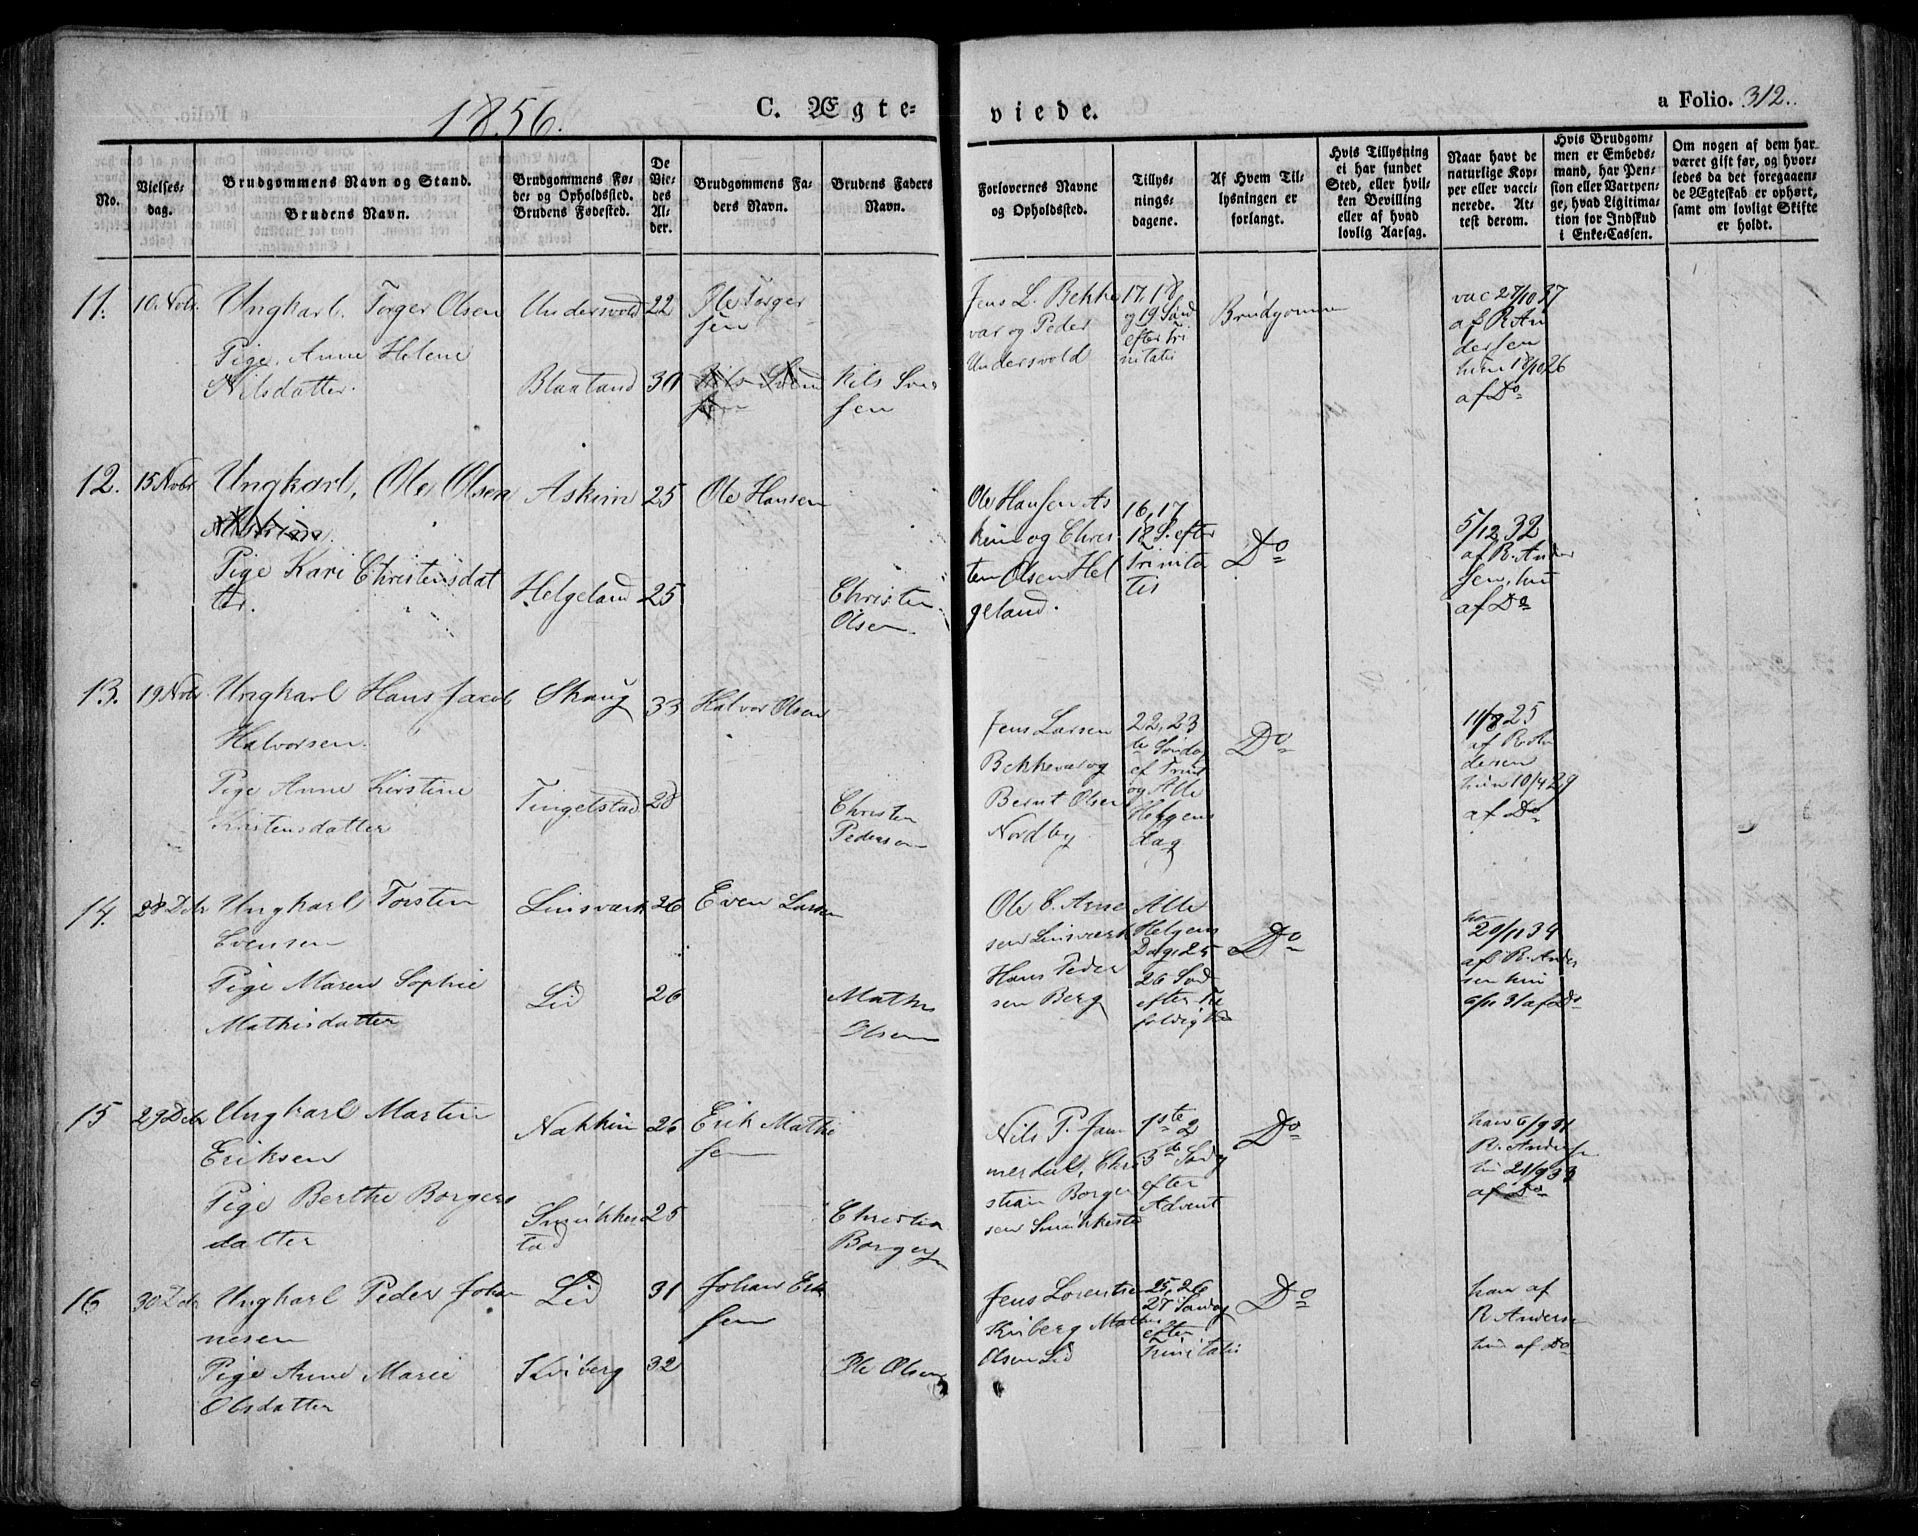 1856.
C. Ægte=
viede.
a Folio. 312.
No.
Vielses=
dag.
Brudgommens Navn og Stand.
Brudens Navn.
Brudgommens Fø=
de= og Opholdssted.
Brudens Fødested.
De
Vie=
des
Al=
der.
Brudgommens Fa=
ders Navn.
Brudens Faders
Navn.
Forlovernes Navne
og Opholdssted.
Tillys=
nings=
dagene.
Af Hvem Til=
lysningen er
forlangt.
Hvis Tillysning
ei har fundet
Sted, eller hvil=
ken Bevilling
eller af hvad
lovlig Aarsag.
Naar havt de
naturlige Kop=
per eller vacci=
nerede. At=
test derom.
Hvis Brudgom=
men er Embeds=
mand, har Pen=
sion eller Vartpen=
ge, hvad Ligitima=
tion for Indskud
i Enke=Cassen.
Om nogen af dem har
været gift før, og hvor=
ledes da det foregaaen=
de Ægteskab er ophørt,
samt om lovligt Skifte
er holdt.
11. 10 Novbr. Ungkarl. Torger Olsen Undersvold 22 Ole Torger
sen
Pige. Anne Helene
Nilsdatter. Blaatand 30 Nils Sven
sen
Jens L. Bekke
var og Peder
Undersvold
17, 18
og 19 Sønd
efter Tri
nitatis
Brudgommen
vac 27/10 37
af R. An
dersen
hun 18/10 26
af Do
12. 15 Novbr Ungkarl, Ole Olsen Askim 25 Ole Hansen
Pige Kari Christensdat
ter. Helgeland 25 Christen
Olsen.
Ole Hansen As
kim og Chris
ten Olsen Hel
geland.
16, 17
18 S. efter
Trinita
tis
Do
5/12 32
af R. Ander
sen, hun
af Do
13. 19 Nobr Ungkarl Hans Jacob Skaug 33 Halvor Olsen
Halvorsen.
Pige Anne Kirstine
Kristensdatter Tingelstad 28 Christen
Pedersen
Jens Larsen
Bekkevar og
Bernt Olsen
Nordby
22, 23
de Søndag
ef Trinit
og Alle
Helgens
dag
Do
11/8 25
af R. An
dersen
hun 10/4 29
af Do
14. 28 Dcbr Ungkarl Torsten Linsværk 26 Even Larsen
Evensen
Pige Maren Sophie
Mathisdatter Lid 26 Mathis
Olsen
Ole C. Arne
sen Linsværk
Hans Peder
sen Berg
Alle
Helgens
Dag, 25
26 Sønd
efter Tre
foldighed
Do
han
20/11 34
af R. Ander
sen hun
9/11 31 af Do
15 29 Dcbr Ungkarl Martin Nakkim 26 Erik Mathi
sen
Eriksen
Pige Berthe Borgers
datter Smükkes
tad 25 Christian
Borgers
Nils P. Jam
merdal, Chri
stian Borger
sen Smükkestad
1ste 2
3de Søndag
efter
Advent
Do
han 6/9 31
R. Andersen
hun 21/9 33
af Do
16 30 Dcbr Ungkarl Peder Johan Lid 31 Johan Erik
sen
nesen
Pige Anne Marie Kviberg 32 Ole Olsen
Olsdatter
Jens Lorentsen
Kviberg Mathis
Olsen Lid
25, 26
27 Søndag
efter
Trinitatis
Do
han af
R. Andersen
hun af Do